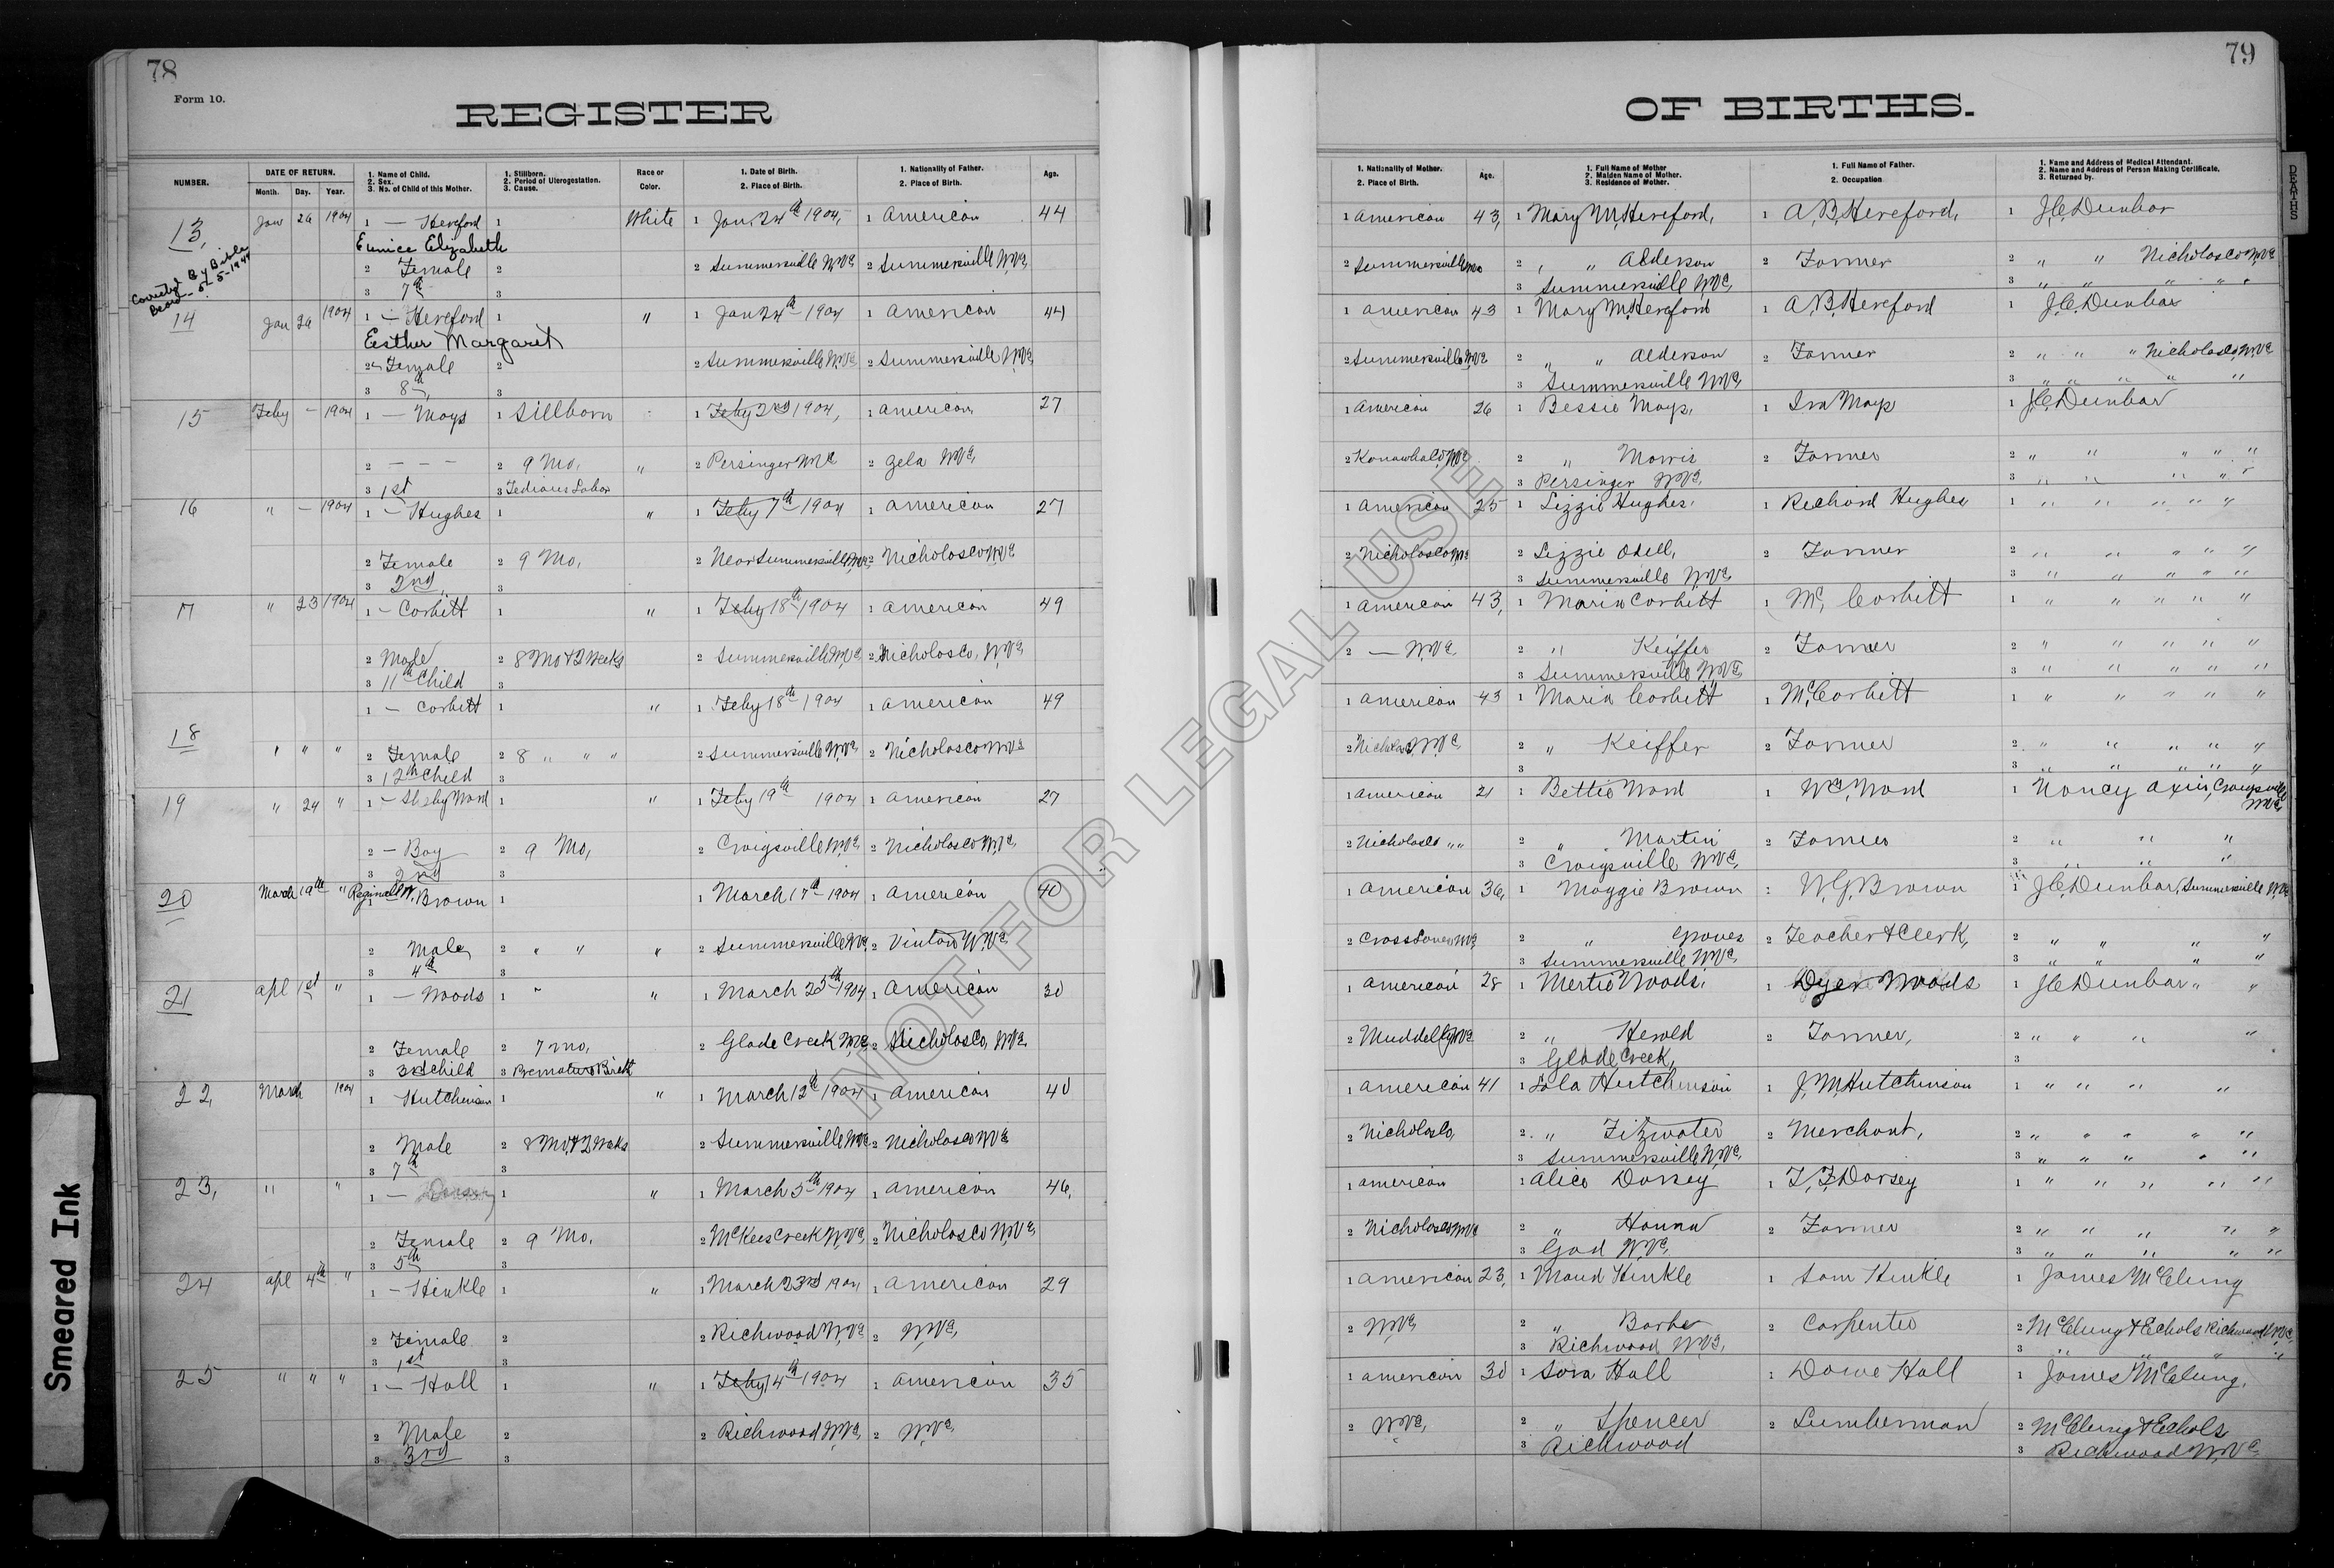 78
Form 10.
REGISTER
NUMBER.
DATE OF RETURN.
Month. Day. Year.
1. Name of Child.
2. Sex.
3. No. of Child of this Mother.
1. Stillborn.
2. Period of Uterogestation.
3. Cause.
Race or Color.
1. Date of Birth.
2. Place of Birth.
1. Nationality of Father.
2. Place of Birth.
Age.
13, Jan 26 1904 1 — Hereford 1 White 1 Jany 24th 1904, 1 American 44
Eunice Elizabeth
Corrected By Bible
5-5-1944
2 Female 2 2 Summersville W.Va. 2 Summersville W.Va.
3 7th 3
14 Jan 26 1904 1 — Hereford 1 " 1 Jan 24th 1904 1 American 44
Esther Margaret
2 Female 2 2 Summersville W.Va. 2 Summersville W.Va.
3 8th 3
15 Feby — 1904 1 — Mays 1 Sillborn 1 Feby 2nd 1904, 1 American 27
2 — — — 2 9 Mo, " 2 Persinger W.Va 2 Zela W.Va,
3 1st 3 Tedious Labor
16 " — 1904 1 — Hughes 1 " 1 Feby 7th 1904 1 American 27
2 Female 2 9 Mo, 2 Near Summersville W.Va. 2 Nicholas Co W.Va
3 2nd 3
17 " 23 1904 1 — Corbitt 1 " 1 Feby 18th 1904 1 American 49
2 Male 2 8 Mo & 2 Weeks 2 Summersville W.Va, 2 Nicholas Co, W.Va,
3 11th Child 3
18 1 — Corbitt 1 " 1 Feby 18th 1904 1 American 49
' " " 2 Female 2 8 " " " 2 Summersville W.Va, 2 Nicholas Co W.Va
3 12th Child 3
19 " 24 " 1 — Ward 1 " 1 Feby 19th 1904 1 American 27
2 — Boy 2 9 Mo, 2 Craigsville W.Va, 2 Nicholas Co W.Va,
3 2nd 3
20 March 19th " Reginald W. 1 Brown 1 1 March 17th 1904 1 American 40
2 Male 2 " " " 2 Summersville W.Va, 2 Vinton W.Va,
3 4th 3
21 Apl 1st " 1 — Woods 1 " " 1 March 25th 1904 1 American 30
2 Female 2 7 Mo, 2 Glade Creek W.Va 2 Nicholas Co, W.Va,
3 3rd Child 3 Premature Birth
22, March 1904 1 Hutchinson 1 " 1 March 12th 1904 1 American 40
2 Male 2 8 Mo, & 2 Weeks 2 Summersville W.Va 2 Nicholas Co W.Va
3 7th 3
23, " " 1 — Dorsey 1 " 1 March 5th 1904 1 American 46,
2 Female 2 9 Mo. 2 McKees Creek W.Va, 2 Nicholas Co W.Va,
3 5th 3
24 Apl 4th " 1 — Hinkle 1 " 1 March 23rd 1904 1 American 29
2 Female 2 2 Richwood W.Va 2 W.Va,
3 1st 3
25 " " " 1 — Hall 1 " 1 Feby 14th 1904 1 American 35
2 Male 2 2 Richwood W.Va, 2 W.Va,
3 3rd 3
79
OF BIRTHS.
1. Nationality of Mother.
2. Place of Birth.
Age.
1. Full Name of Mother
2. Maiden Name of Mother.
3. Residence of Mother.
1. Full Name of Father.
2. Occupation
1. Name and Address of Medical Attendant.
2. Name and Address of Person Making Certificate.
3. Returned by.
1 American 43, 1 Mary M, Hereford, 1 A, B, Hereford, 1 J, C, Dunbar
2 Summersville 2 , " Alderson 2 Farmer 2 " " Nicholas Co W.Va
3 Summersville W.Va, 3 " " " " "
1 American 43 1 Mary M, Hereford 1 A, B, Hereford 1 J, C, Dunbar
2 Summersville W.Va 2 " " Alderson 2 Farmer 2 " " " Nicholas Co, W.Va
3 Summersville W.Va, 3 " " " " "
1 American 26 1 Bessie Mays, 1 Ira Mays 1 J, C, Dunbar
2 Kanawha Co, W.Va 2 " Morris 2 Farmer 2 " " " " "
3 Persinger W.Va, 3 " " " " "
1 American 25 1 Lizzie Hughes, 1 Richard Hughes 1 " " " " "
2 Nicholas Co, W.Va 2 Lizzie Odell, 2 Farmer 2 " " " " "
3 Summersville W.Va, 3 " " " " "
1 American 43, 1 Maria Corbitt 1 Mc, Corbitt 1 " " " " "
2 — W.Va 2 " Keiffer 2 Farmer 2 " " " " "
3 Summersville W.Va, 3 " " " " "
1 American 43 1 Maria Corbitt 1 Mc, Corbitt 1 " " " " "
2 W.Va, 2 " Keiffer 2 Farmer 2 " " " " "
3 3 " " " " "
1 American 21 1 Bettie Ward 1 Wm, Ward 1 Nancy Craigsville W.Va
2 Nicholas Co " " 2 " Martin 2 Farmer 2 " " "
3 Craigsville W.Va, 3 " " "
1 American 36, 1 Maggie Brown 1 W, G, Brown 1 J, C, Dunbar, Summersville W,Va
2 2 " Groves 2 Teacher & Clerk, 2 " " " "
3 Summersville W.Va, 3 " " " "
1 American 28 1 Mertie Woods, 1 Dyer Woods 1 J, C, Dunbar " "
2 2 " Herold 2 Farmer, 2 " " " "
3 Glade Creek, 3
1 American 41 1 Lola Hutchinson 1 J, M, Hutchinson 1 " " " "
2 Nicholas Co, 2 " Fitzwater 2 Merchant, 2 " " " " "
3 Summersville W.Va, 3 " " " " "
1 American 1 Alice Dorsey 1 T, F, Dorsey 1 " " " " "
2 Nicholas Co W.Va 2 " Hanna 2 Farmer 2 " " " " "
3 Gad W.Va, 3 " " " " "
1 American 23, 1 Maud Hinkle 1 Sam Hinkle 1 James McClung
2 W.Va, 2 " Barber 2 Carpenter 2 McClung & Echols Richwood W.Va,
3 Richwood W.Va, 3 " " " "
1 American 30 1 Sara Hall 1 Dowe Hall 1 James McClung,
2 W.Va, 2 " Spencer 2 Lumberman 2 McClung & Echols
3 Richwood 3 Richwood W.Va
DEATHS
Smeared Ink
NOT FOR LEGAL USE